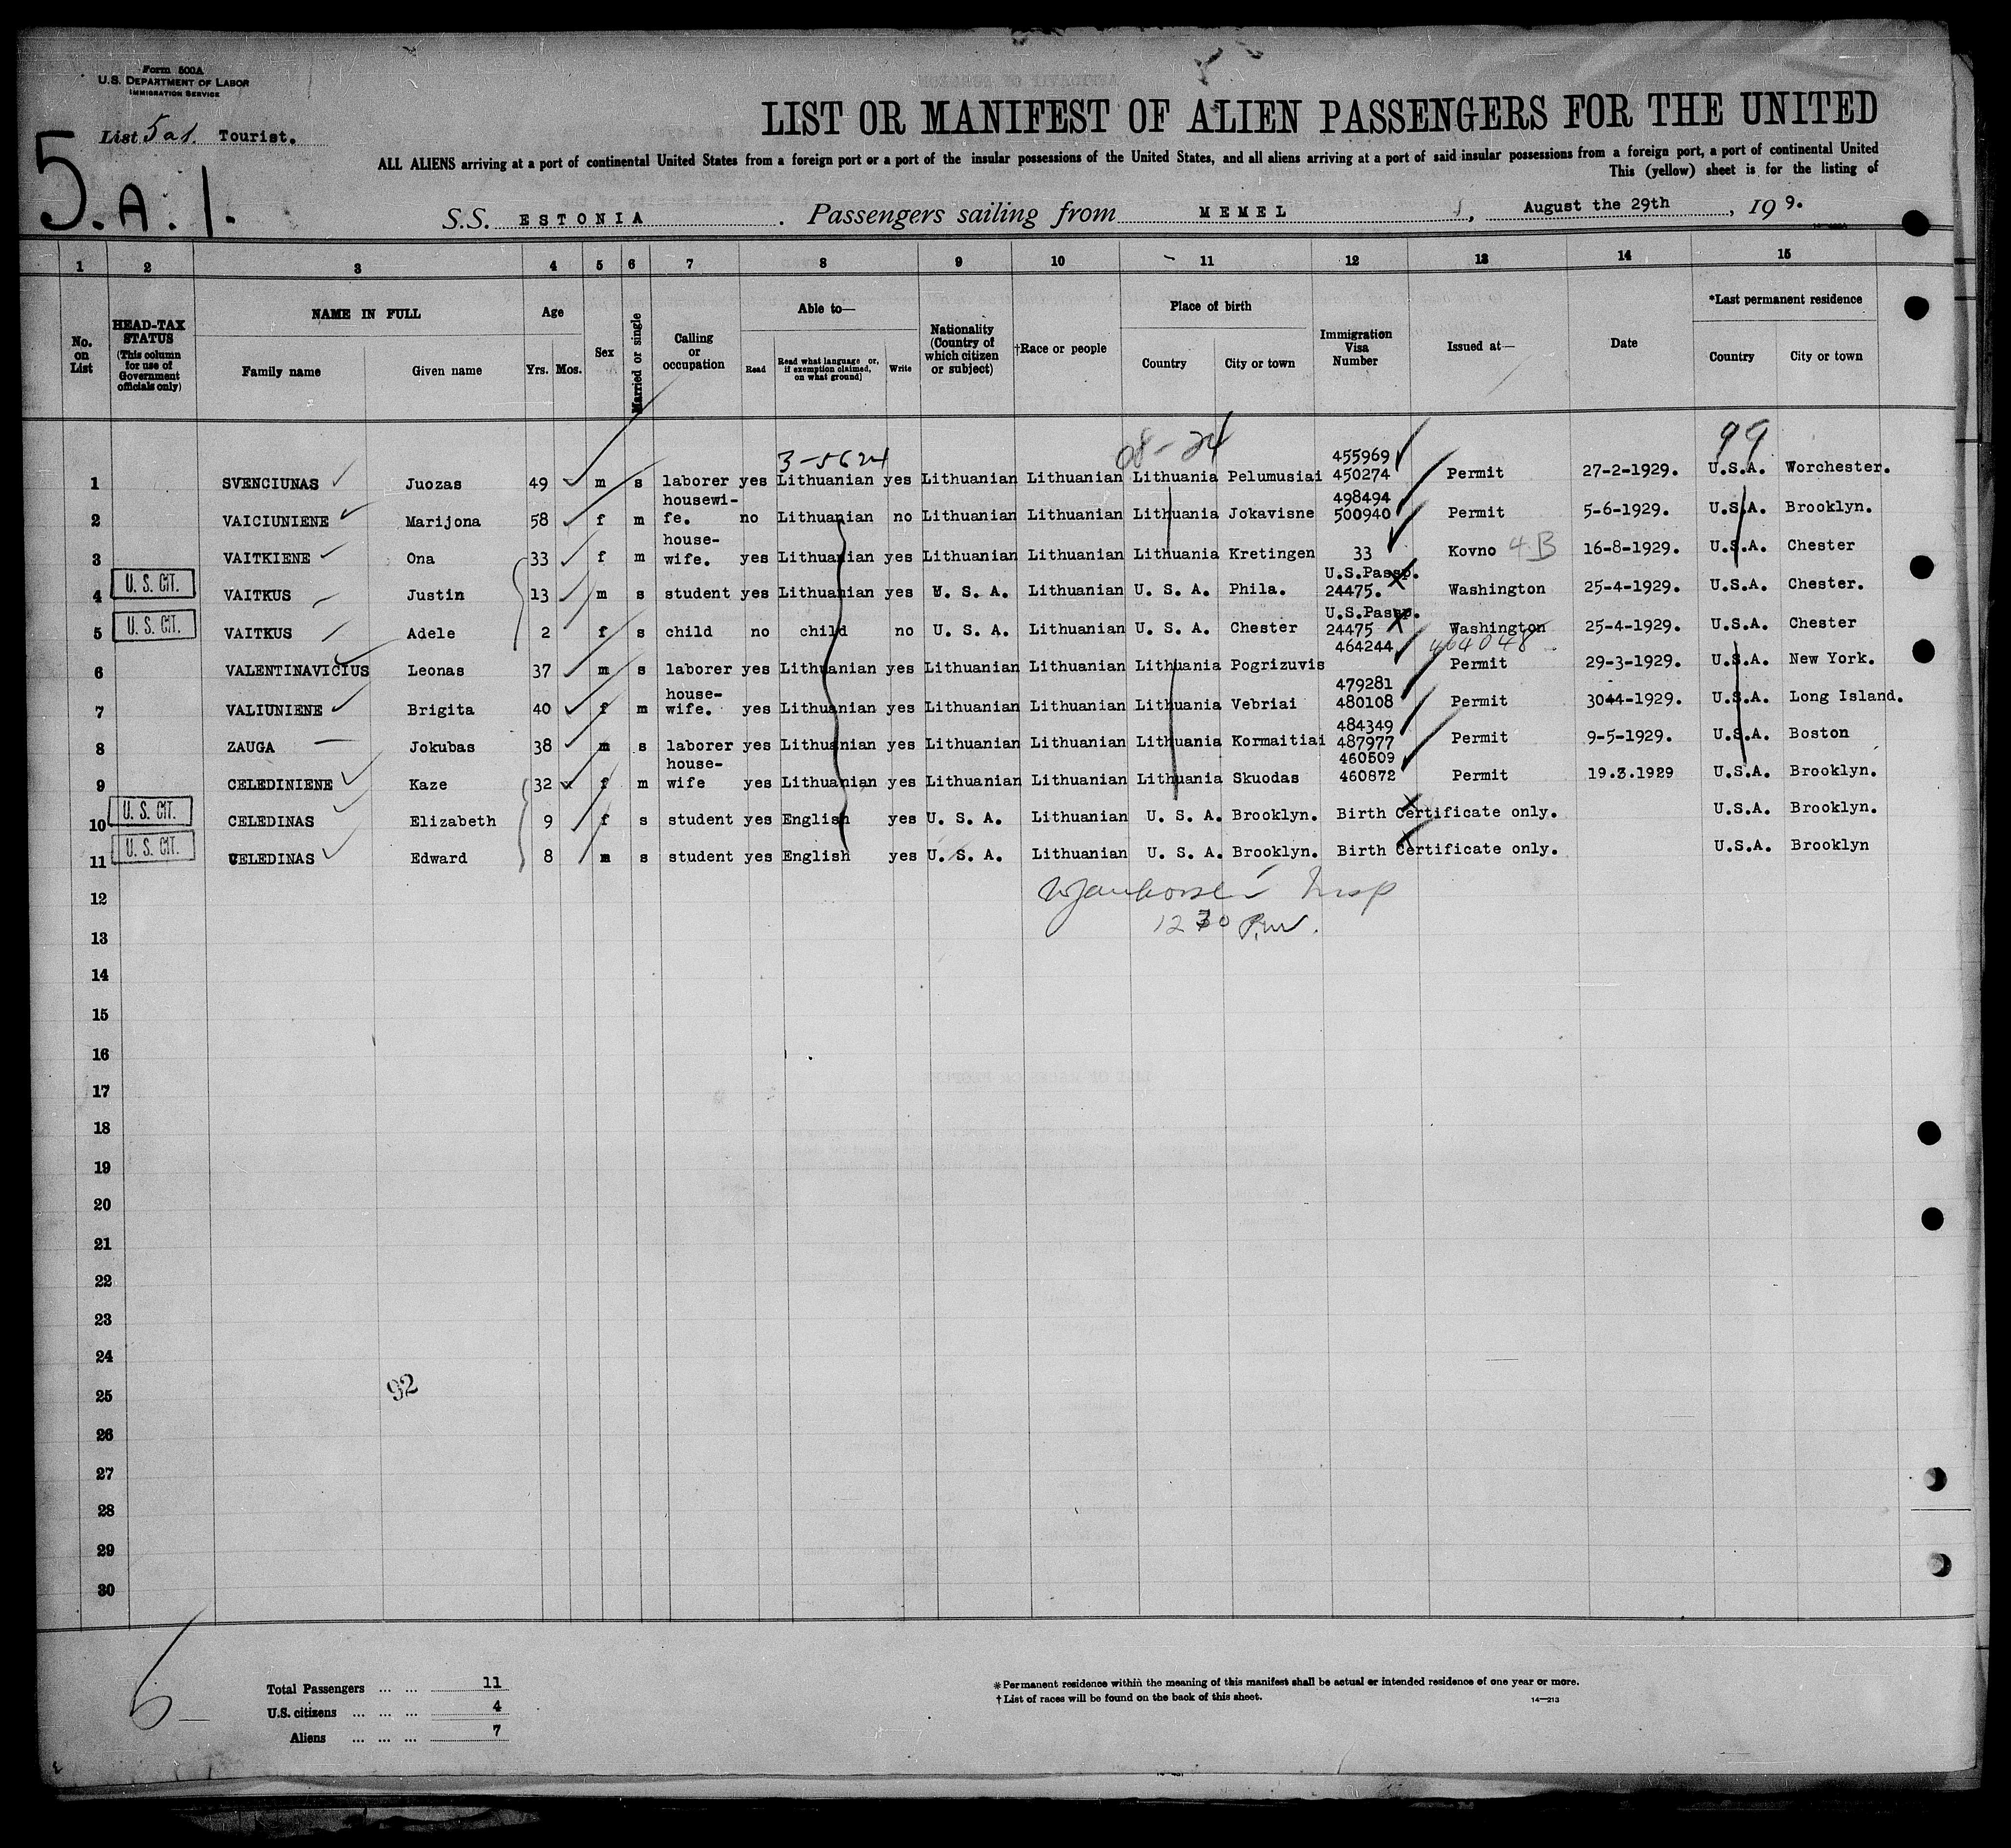 Form 500A
U.S. DEPARTMENT OF LABOR
IMMIGRATION SERVICE
List 5 a 1. Tourist.
5.A.1.
LIST OR MANIFEST OF ALIEN PASSENGERS FOR THE UNITED
ALL ALIENS arriving at a port of continental United States from a foreign port or a port of the insular possessions of the United States, and all aliens arriving at a port of said insular possessions from a foreign port, a port of continental United
This (yellow) sheet is for the listing of
S.S. ESTONIA. Passengers sailing from MEMEL, August the 29th, 19 9.
1 2 3 4 5 6 7 8 9 10 11 12 13 14 15
No. on List
HEAD-TAX STATUS (This column for use of Government officials only)
NAME IN FULL
Family name Given name
Age
Yrs. Mos.
Sex
Married or single
Calling or occupation
Able to—
Read Read what language or, if exemption claimed, on what ground) Write
Nationality (Country of which citizen or subject)
†Race or people
Place of birth
Country City or town
Immigration Visa Number
Issued at—
Date
*Last permanent residence
Country City or town
3-5624 08-24 99
1 SVENCIUNAS Juozas 49 m s laborer yes Lithuanian yes Lithuanian Lithuanian Lithuania Pelumusiai 455969 450274 Permit 27-2-1929. U.S.A. Worchester.
2 VAICIUNIENE Marijona 58 f m housewi-fe. no Lithuanian no Lithuanian Lithuanian Lithuania Jokavisne 498494 500940 Permit 5-6-1929. U.S.A. Brooklyn.
3 VAITKIENE Ona 33 f m house-wife. yes Lithuanian yes Lithuanian Lithuanian Lithuania Kretingen 33 Kovno 4 B 16-8-1929. U.S.A. Chester
4 U. S. CIT. VAITKUS Justin 13 m s student yes Lithuanian yes U. S. A. Lithuanian U. S. A. Phila. U.S.Passp. 24475. Washington 25-4-1929. U.S.A. Chester.
5 U. S. CIT. VAITKUS Adele 2 f s child no child no U. S. A. Lithuanian U. S. A. Chester U.S.Passp. 24475 Washington 25-4-1929. U.S.A. Chester
6 VALENTINAVICIUS Leonas 37 m s laborer yes Lithuanian yes Lithuanian Lithuanian Lithuania Pogrizuvis 464244 464048 Permit 29-3-1929. U.S.A. New York.
7 VALIUNIENE Brigita 40 f m house-wife. yes Lithuanian yes Lithuanian Lithuanian Lithuania Vebriai 479281 480108 Permit 3044-1929. U.S.A. Long Island.
8 ZAUGA Jokubas 38 m s laborer yes Lithuanian yes Lithuanian Lithuanian Lithuania Kormaitiai 484349 487977 Permit 9-5-1929. U.S.A. Boston
9 CELEDINIENE Kaze 32 f m house-wife yes Lithuanian yes Lithuanian Lithuanian Lithuania Skuodas 460509 460872 Permit 19.3.1929 U.S.A. Brooklyn.
10 U. S. CIT. CELEDINAS Elizabeth 9 f s student yes English yes U. S. A. Lithuanian U. S. A. Brooklyn. Birth Certificate only. U.S.A. Brooklyn.
11 U. S. CIT. CELEDINAS Edward 8 m s student yes English yes U. S. A. Lithuanian U. S. A. Brooklyn. Birth Certificate only. U.S.A. Brooklyn
12 Insp
13 1230 P.M.
14
15
16
17
18
19
20
21
22
23
24
25 92
26
27
28
29
30
Total Passengers ... ... 11
U.S. citizens ... ... ... 4
Aliens ... ... ... 7
*Permanent residence within the meaning of this manifest shall be actual or intended residence of one year or more.
†List of races will be found on the back of this sheet.
14—213